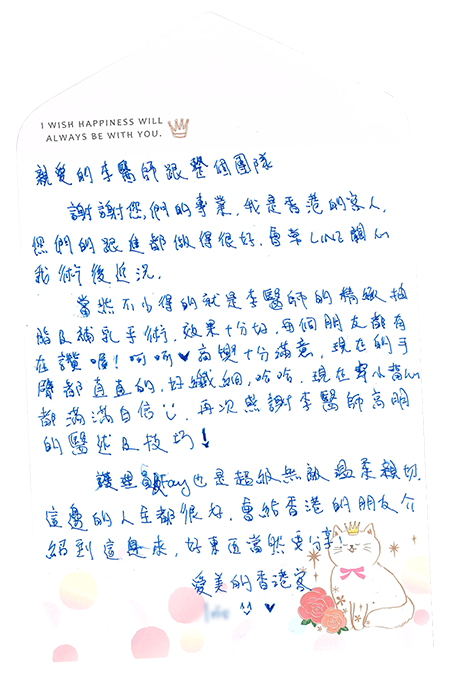 I WISH HAPPINESS WILL
ALWAYS BE WITH YOU.
親愛的李醫師跟整個團隊
謝謝您們的專業,我是香港的客人,
您們的跟進都做得很好,會常LINE關心
我術後近況.
當然不少得的就是李醫師的精緻抽
脂及補乳手術,效果十分好,每個朋友都有
在讚喔!呵呵♥高興十分滿意,現在的手
臂都直直的,好纖細,哈哈,現在穿小背心
都滿滿自信,再次感謝李醫師高明
的醫術及技巧!
護理Fay也是超級無敵溫柔親切,
這邊的人全都很好,會給香港的朋友介
紹到這邊來,好東西當然要分享!
愛美的香港客
^^ ♥